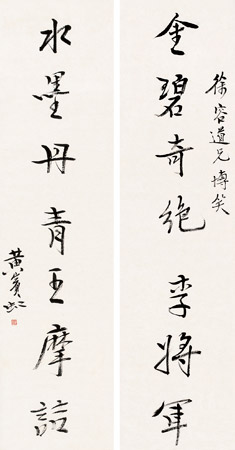 徐容道兄博笑
金碧奇绝李将军
水墨丹青王摩詰
黄賓虹